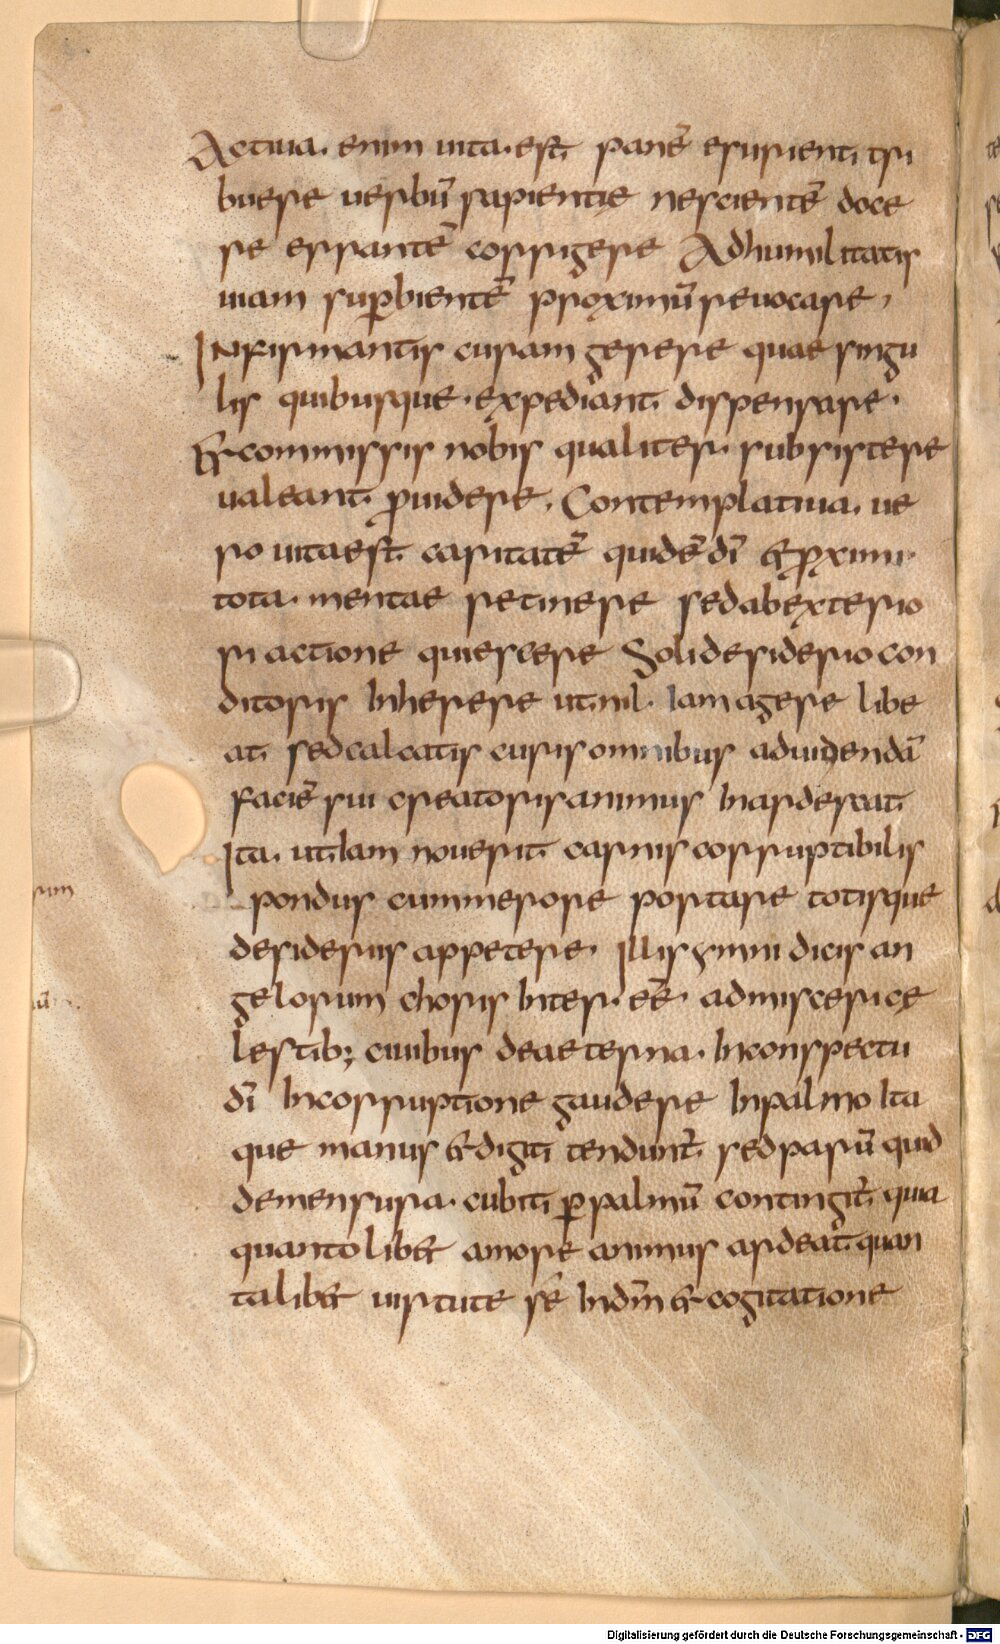 Actiua. enim uita. est panē esurienti tri
buere uerbū sapientię nescientē doce
re errantē corrigere Adhumilitatis
uiam supbientē proximū reuocare,
INfirmantis curam gerere quae singu
lis quibusque. expediant dispensare.
&commissis nobis qualiter. subsistere
ualeant. puidere. Contemplatiua. ue
ro uitaest caritatē quidē dī & pximi
tota. mentae retinere sedabexterio
ri actione quiescere Solidesiderio con
ditoris Inherere ut nil. Iam agere libe
at sedcalcatis curis omnibus aduidendā
faciē sui creatoris animus Inardescat
Ita. ut Iam nouerit carnis corruptibilis
pondus cummerore portare totisque
desideriis appetere. Illis ymni dicis an
gelorum choris Inter. eē. admisceri cę
lestib; ciuibus deaeterna. Inconspectu
dī Incorruptione gaudere Inpalmo Ita
que manus & digiti tendunt sedparū quid
demensura. cubiti p palmū contingit quia
quantolib& amore animus ardeat quan
talib& uirtute sē Indm̄ & cogitatione
rum
Digitalisierung gefördert durch die Deutsche Forschungsgemeinschaft - DFG